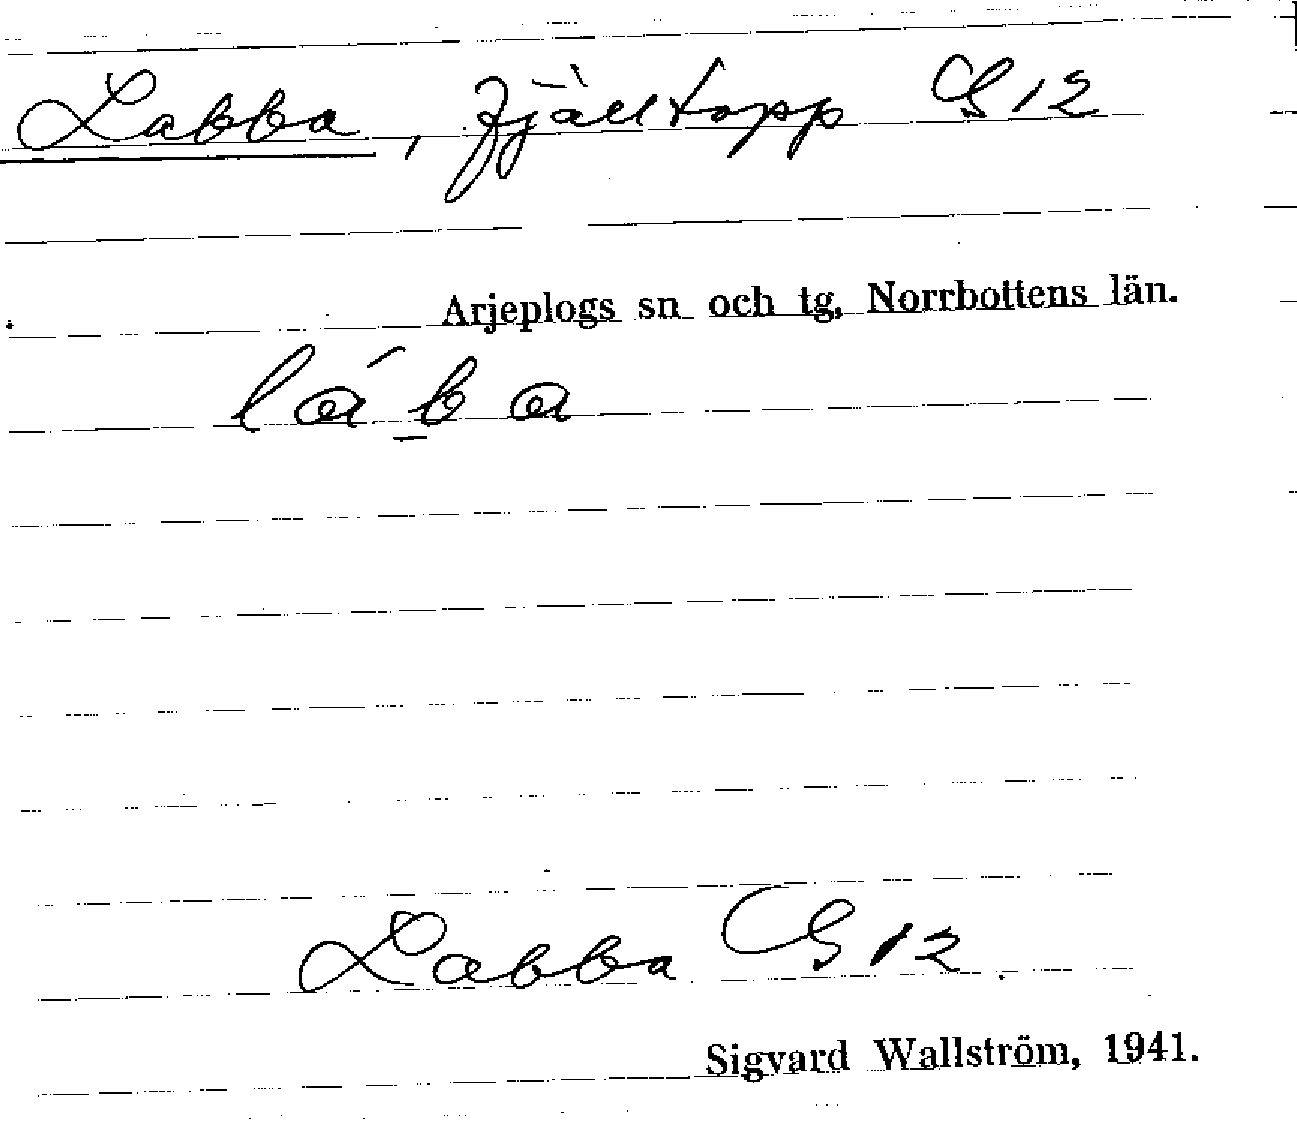 Labba, fjälltopp G 12
Arjeplogs sn och tg, Norrbottens län.
láb̲a
Labba G 12.
Sigvard Wallström, 1941.